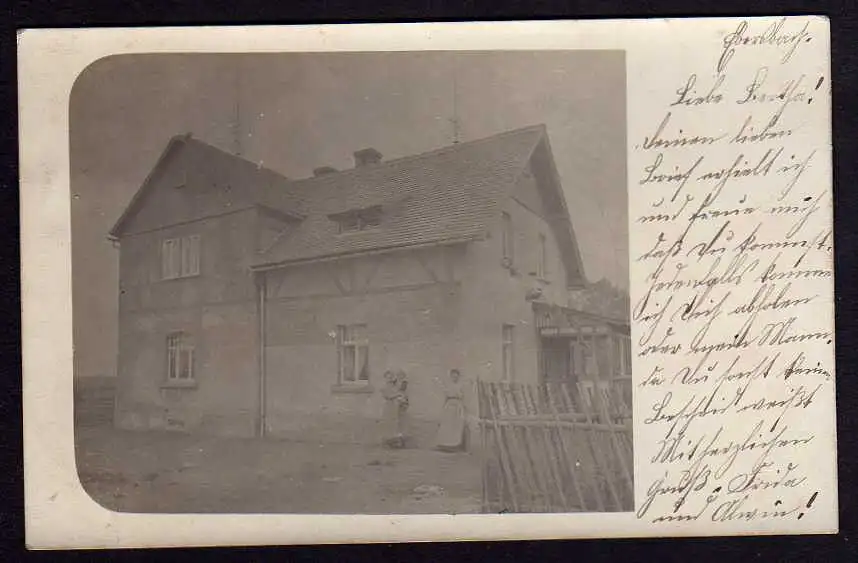 Ebersbach.
Liebe Bertha!
Deinen lieben
Brief erhielt ich
und freue mich
daß Du kommst.
Jedenfalls komme
ich Dich abholen
oder mein Mann,
da Du sonst keinen
Bescheid weißt
Mit herzlichen
Gruß. Frida
und Alwin!